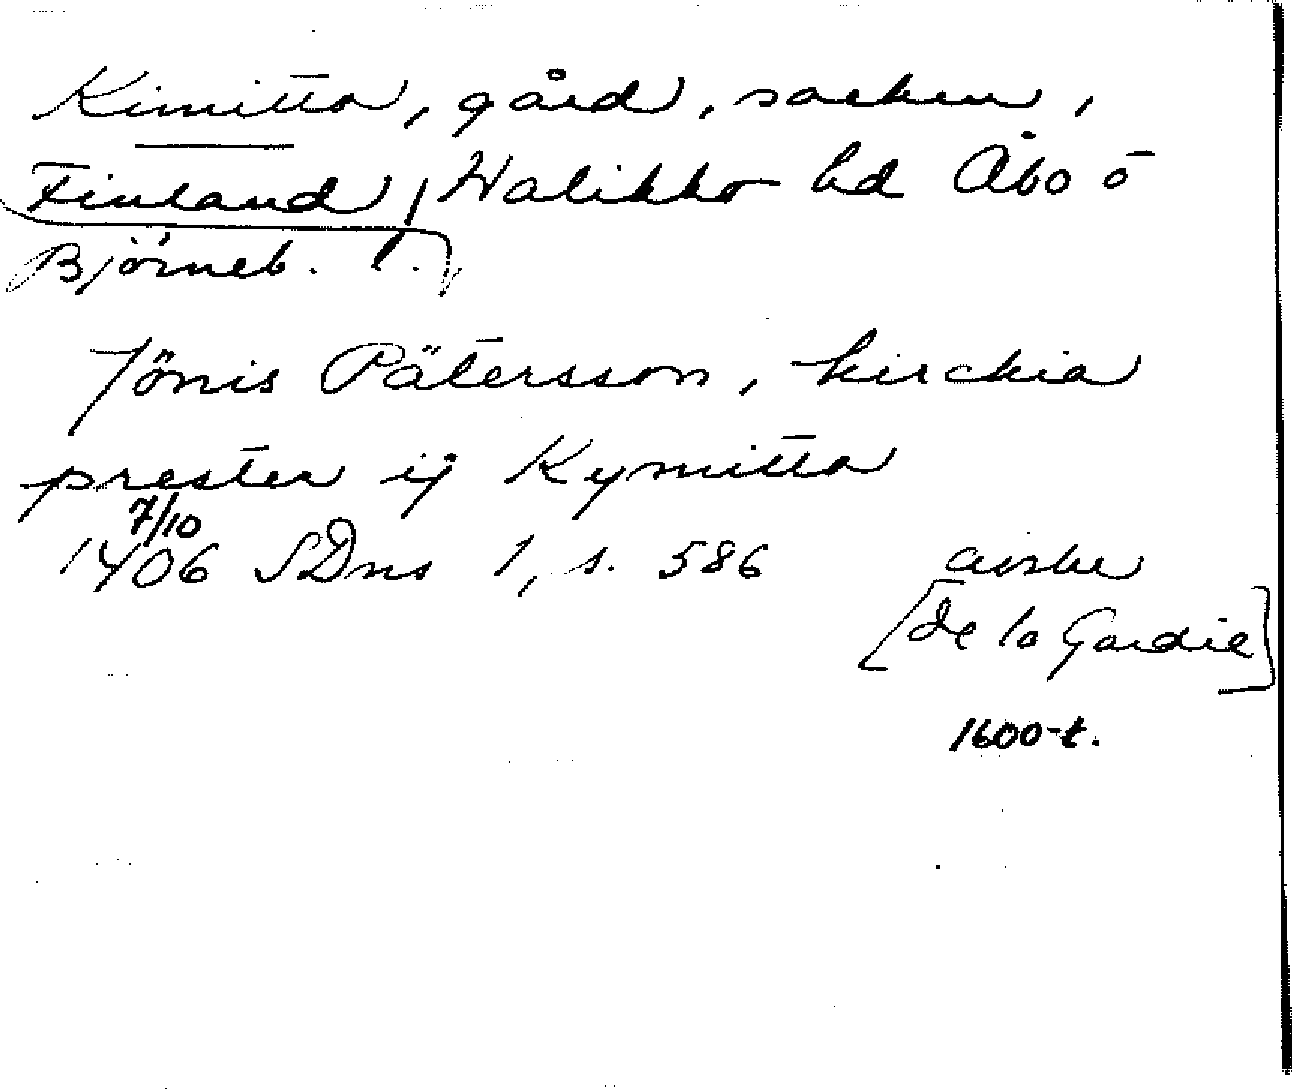 Kimitto, gård, socken,
Finland, Halikko hd Åbo o
Björneb. l.
Jönis Pätersson, kirckia
prester ij Kymitto
7/10
1406 SDns 1, s. 586 avskr
[De la Gardie]
1600-t.